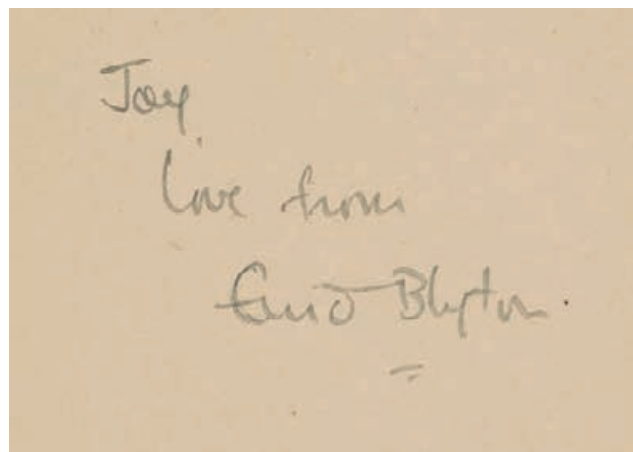 Joy
love from
Enid Blyton.